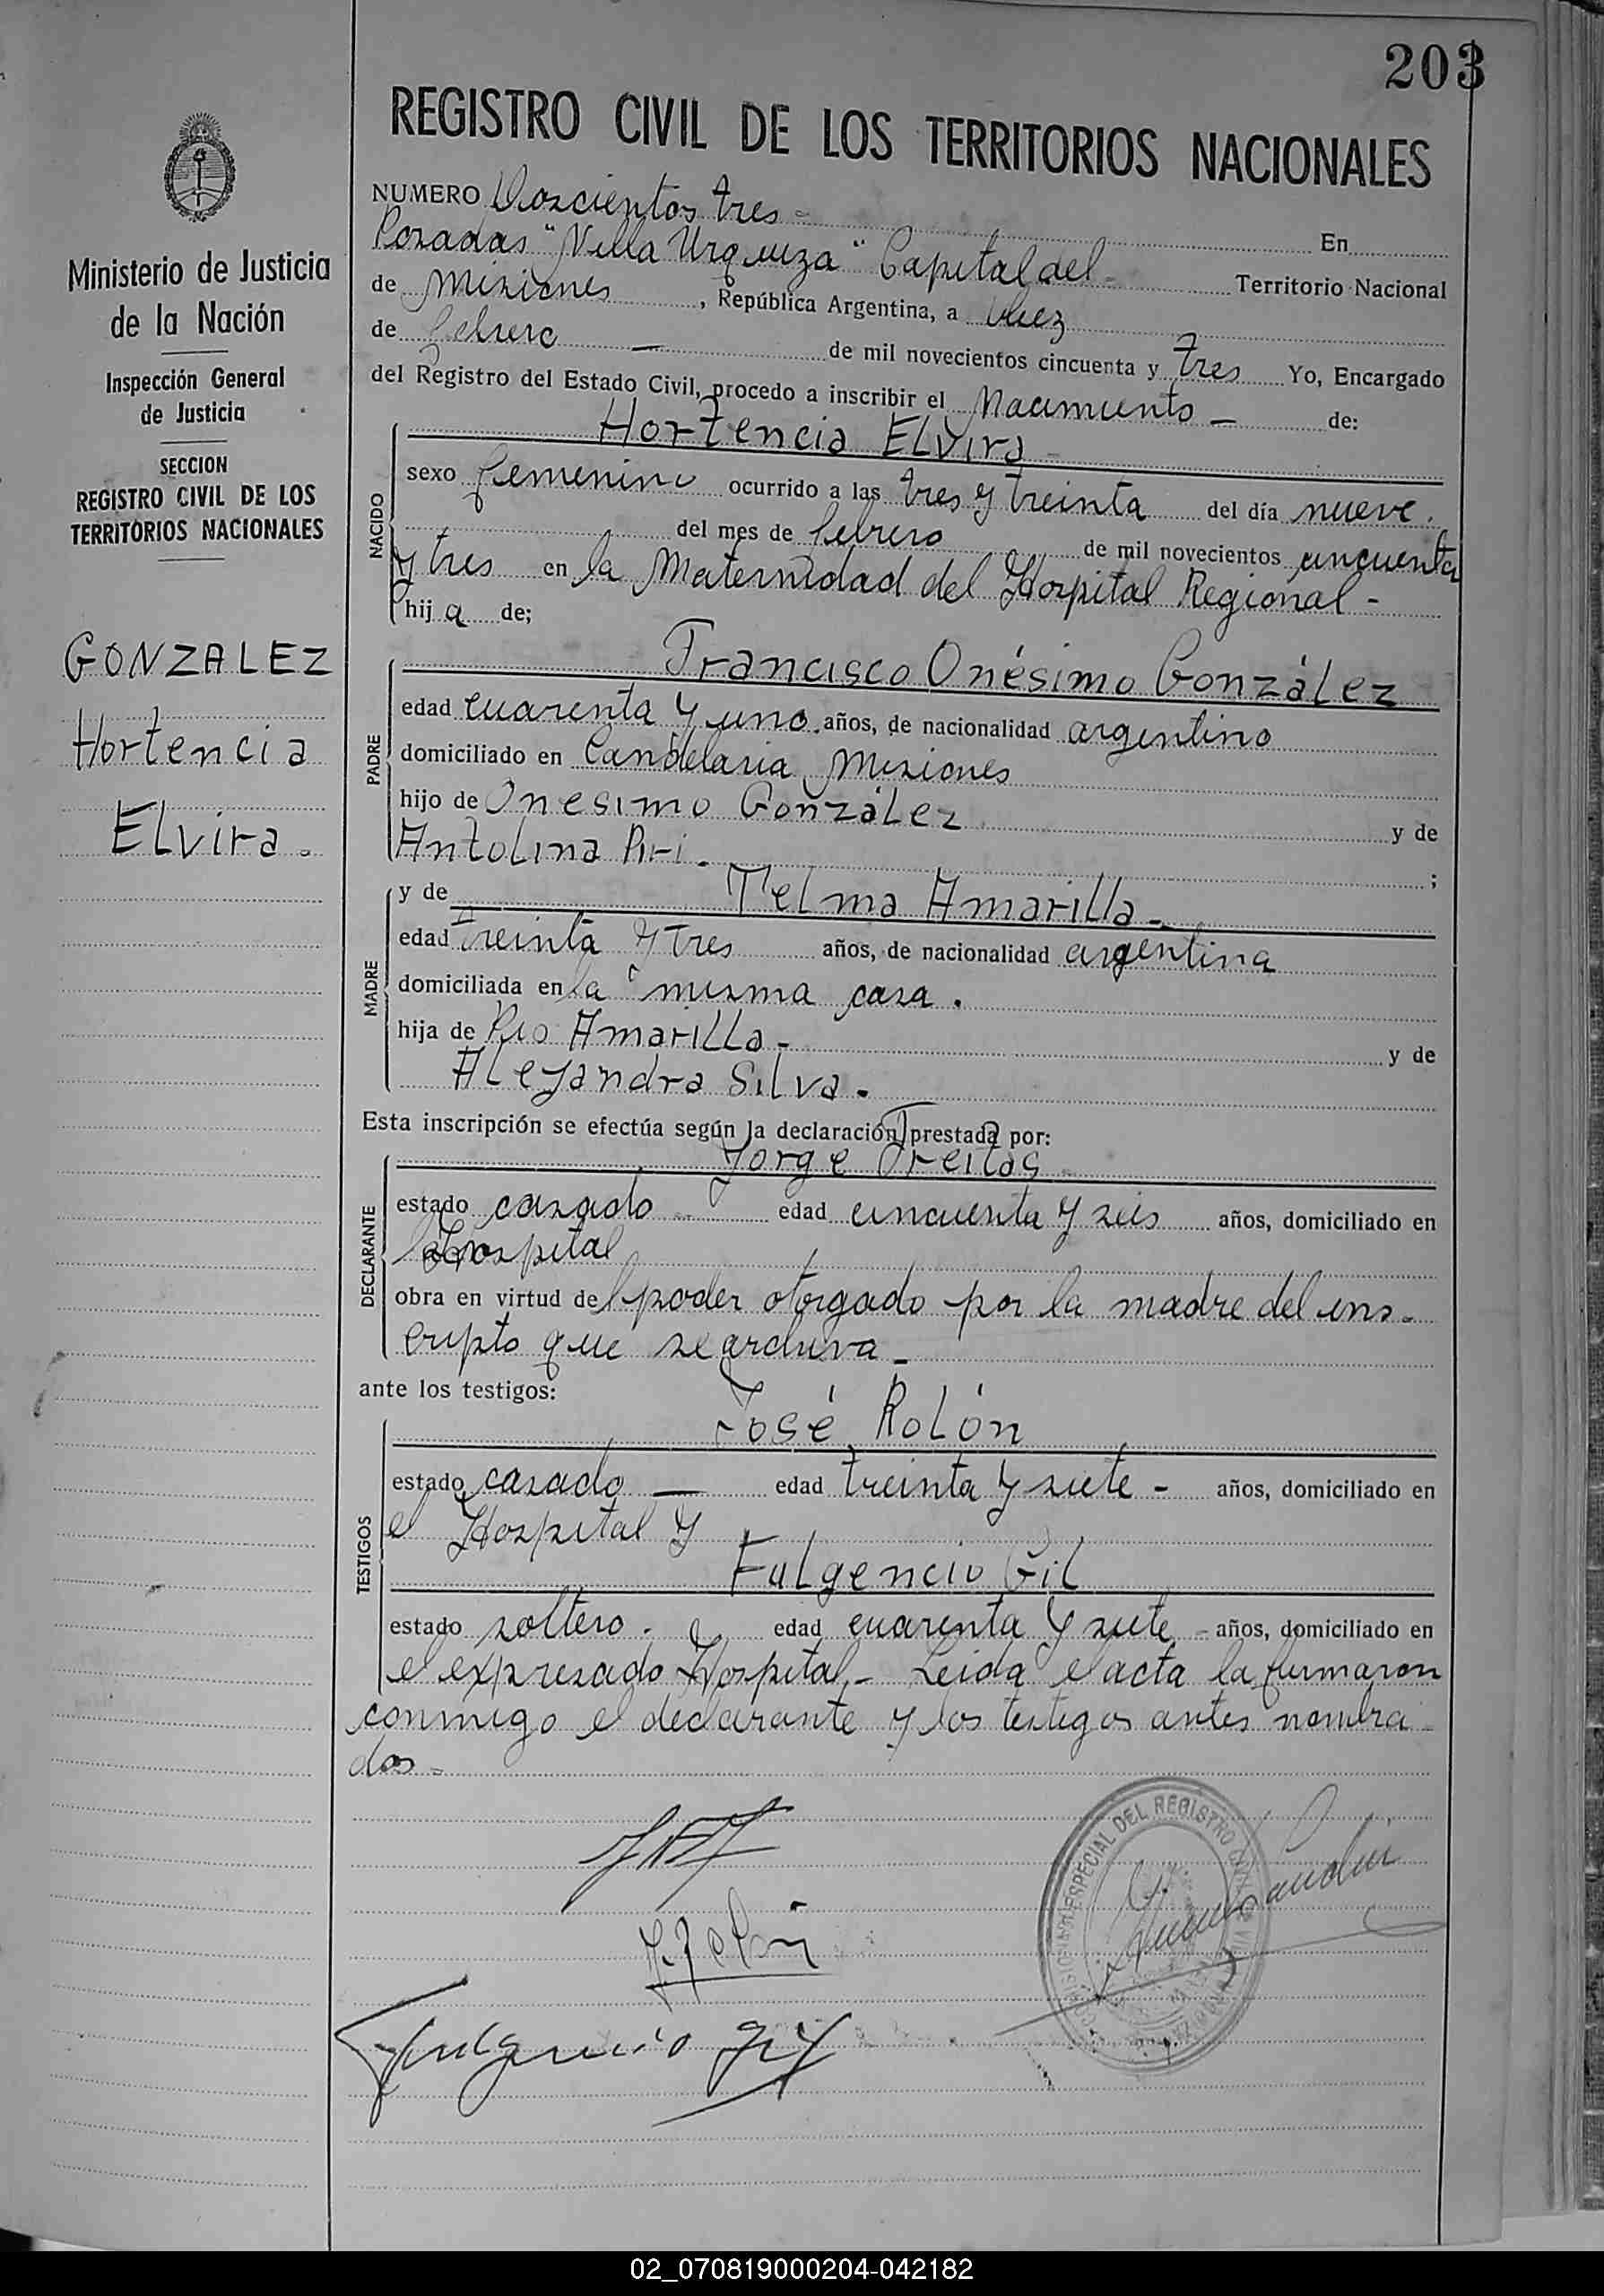 203
REGISTRO CIVIL DE LOS TERRITORIOS NACIONALES
Ministerio de Justicia
de la Nación
Inspección General
de Justicia
SECCION
REGISTRO CIVIL DE LOS
TERRITORIOS NACIONALES
GONZALEZ
Hortencia
Elvira.
NUMERO Doscientos tres - En
Posadas "Villa Urquiza" Capital del Territorio Nacional
de Misiones, República Argentina, a diez
de febrero — de mil novecientos cincuenta y tres Yo, Encargado
del Registro del Estado Civil, procedo a inscribir el Nacimiento — de:
Hortencia Elvira
NACIDO
sexo femenino ocurrido a las tres y treinta del día nueve
del mes de febrero de mil novecientos cincuenta
y tres en la Maternidad del Hospital Regional -
hija de;
Francisco Onésimo González
PADRE
edad cuarenta y uno años, de nacionalidad argentino
domiciliado en Candelaria, Misiones
hijo de Onesimo González y de
Antolina Piri. ;
y de Telma Amarilla -
MADRE
edad treinta y tres años, de nacionalidad argentina
domiciliada en la misma casa.
hija de Pio Amarilla - y de
Alejandra Silva.
Esta inscripción se efectúa según la declaración prestada por:
Jorge Freitas
DECLARANTE
estado casado edad cincuenta y seis años, domiciliado en
Hospital
obra en virtud del poder otorgado por la madre del ins-
cripto que se archiva -
ante los testigos:
José Rolón
TESTIGOS
estado casado — edad treinta y siete - años, domiciliado en
el Hospital y
Fulgencio Gil
estado soltero. edad cuarenta y siete - años, domiciliado en
el expresado Hospital. - Leida el acta la firmaron
conmigo el declarante y los testigos antes nombra-
dos -
ESPECIAL DEL REGISTRO
Fulgencio Gil
02_070819000204-042182